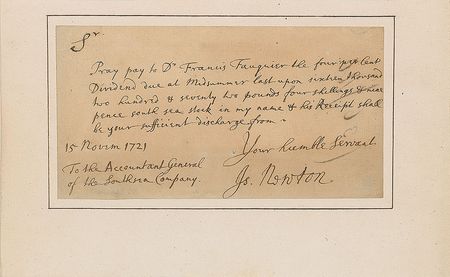 Sr
Pray pay to Dr Francis Fauquier the four per Cent
Dividend due at Midsummer last upon sixteen thousand
two hundred & seventy two pounds four shillings & nine
pence south sea stock in my name & his Receipt shall
be your sufficient discharge from
Your humble Servant
15 Novem 1721
Is. Newton.
To the Accountant General
of the Southsea Company.